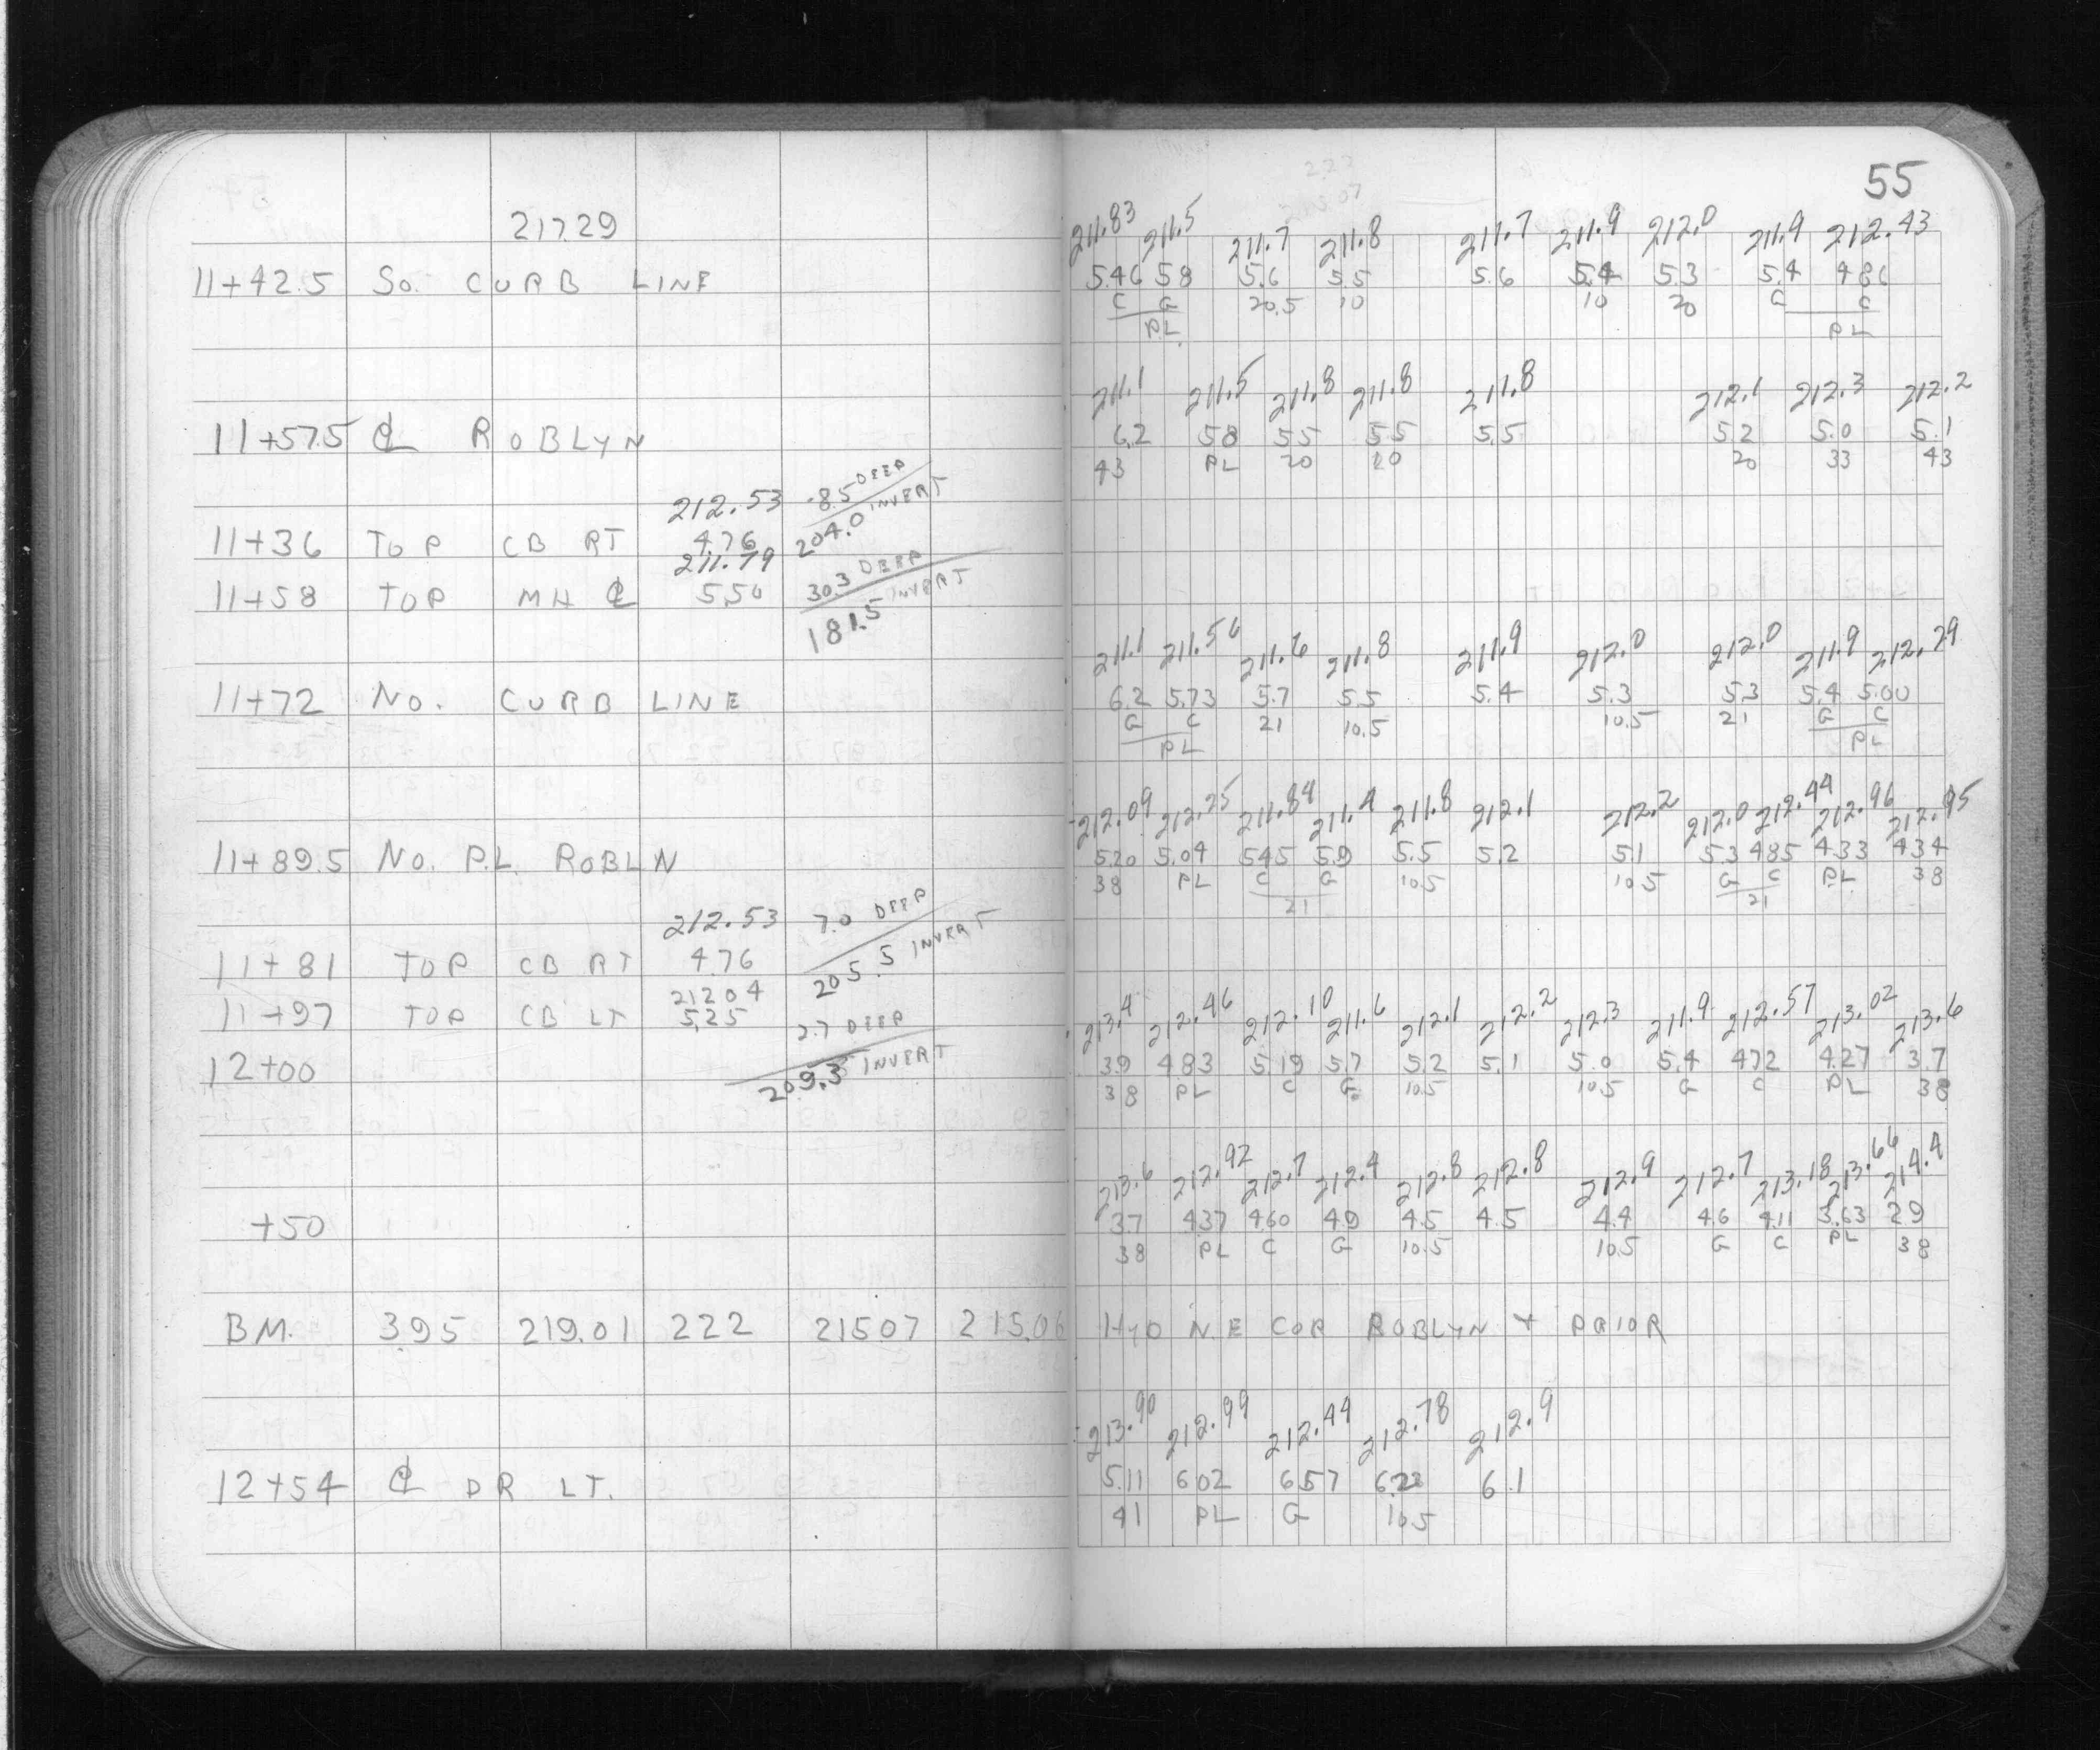 55
217.29
211.83 211.5 211.7 211.8 211.7 211.9 212.0 211.9 212.43
11+42.5 So. CURB LINE 5.46 5.8 5.6 5.5 5.6 5.4 5.3 5.4 4.86
C G 20.5 10 10 20 G C
PL PL
211.1 211.5 211.8 211.8 211.8 212.1 212.3 212.2
11+57.5 ℄ ROBLYN 6.2 5.8 5.5 5.5 5.5 5.2 5.0 5.1
43 PL 20 10 20 33 43
212.53 -8.5 DEEP
11+36 TOP CB RT 4.76 204.0 INVERT
211.79 30.3 DEEP
11+58 TOP MH ℄ 5.50 181.5 INVERT
211.1 211.56 211.6 211.8 211.9 212.0 212.0 211.9 212.29
11+72 No. CURB LINE 6.2 5.73 5.7 5.5 5.4 5.3 5.3 5.4 5.00
G C 21 10.5 10.5 21 G C
PL PL
212.09 212.25 211.84 211.4 211.8 212.1 212.2 212.0 212.44 212.96 212.95
11+89.5 No. P.L. ROBLN 5.20 5.04 5.45 5.9 5.5 5.2 5.1 5.3 4.85 4.33 4.34
38 PL C G 10.5 10.5 G C PL 38
21 21
212.53 7.0 DEEP
11+81 TOP CB RT 4.76 205.5 INVERT
212.04 2.7 DEEP
11+97 TOP CB LT 5.25 209.3 INVERT
213.4 212.46 212.10 211.6 212.1 212.2 212.3 211.9 212.57 213.02 213.6
12+00 3.9 4.83 5.19 5.7 5.2 5.1 5.0 5.4 4.72 4.27 3.7
38 PL C G 10.5 10.5 G C PL 38
213.6 212.92 212.7 212.4 212.8 212.8 212.9 212.7 213.18 213.66 214.4
+50 3.7 4.37 4.60 4.9 4.5 4.5 4.4 4.6 4.11 3.63 2.9
38 PL C G 10.5 10.5 G C PL 38
BM. 3.95 219.01 222 215.07 215.06 HYD N.E COR ROBLYN + PRIOR
213.90 212.99 212.44 212.78 212.9
12+54 ℄ DR LT. 5.11 6.02 6.57 6.23 6.1
41 PL G 10.5